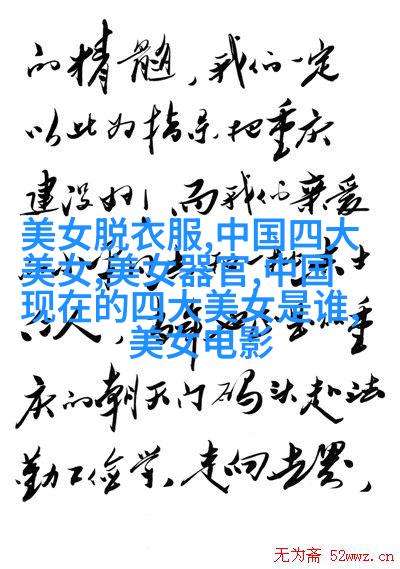 的精髓，我们一定
以此为指导把重庆
建设好！而我们亲爱
美女脱衣服,中国四大
美女,美女器官,中国
现在的四大美女是谁,
美女电影
庆的朝天门码头赴法
勤工俭学，走向世界，
无为斋 52wwz.cn